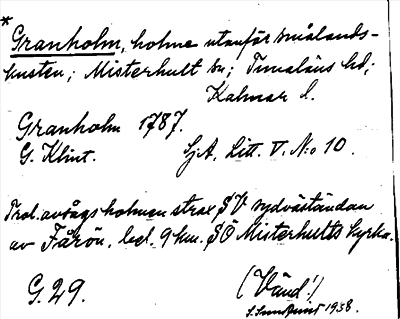 *
Granholm, holme utanför smålands-
kusten; Misterhult sn; Tunaläns hd;
Kalmar l.
Granholm 1787.
G. Klint. SjA, Litt. V. No 10.
Trol. avsågs holmen strax SV sydväständan
av Färön, bel. 9 km. SÖ Misterhults kyrka.
G. 29. (Vänd!)
1938.